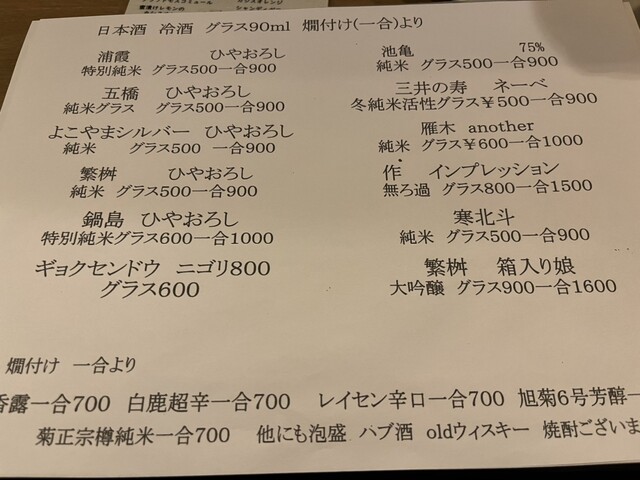 日本酒 冷酒 グラス90ml 燗付け(一合)より
浦霞 ひやおろし
特別純米 グラス500一合900
五橋 ひやおろし
純米グラス グラス500一合900
よこやまシルバー ひやおろし
純米 グラス500 一合900
繁桝 ひやおろし
純米 グラス500一合900
鍋島 ひやおろし
特別純米グラス600一合1000
ギョクセンドウ ニゴリ800
グラス600
池亀 75%
純米 グラス500一合900
三井の寿 ネーベ
冬純米活性グラス¥500一合900
雁木 another
純米 グラス¥600一合1000
作 インプレッション
無ろ過 グラス800一合1500
寒北斗
純米 グラス500一合900
繁桝 箱入り娘
大吟醸 グラス900一合1600
燗付け 一合より
香露一合700 白鹿超辛一合700 レイセン辛口一合700 旭菊6号芳醇一
菊正宗樽純米一合700 他にも泡盛 ハブ酒 oldウィスキー 焼酎ございま